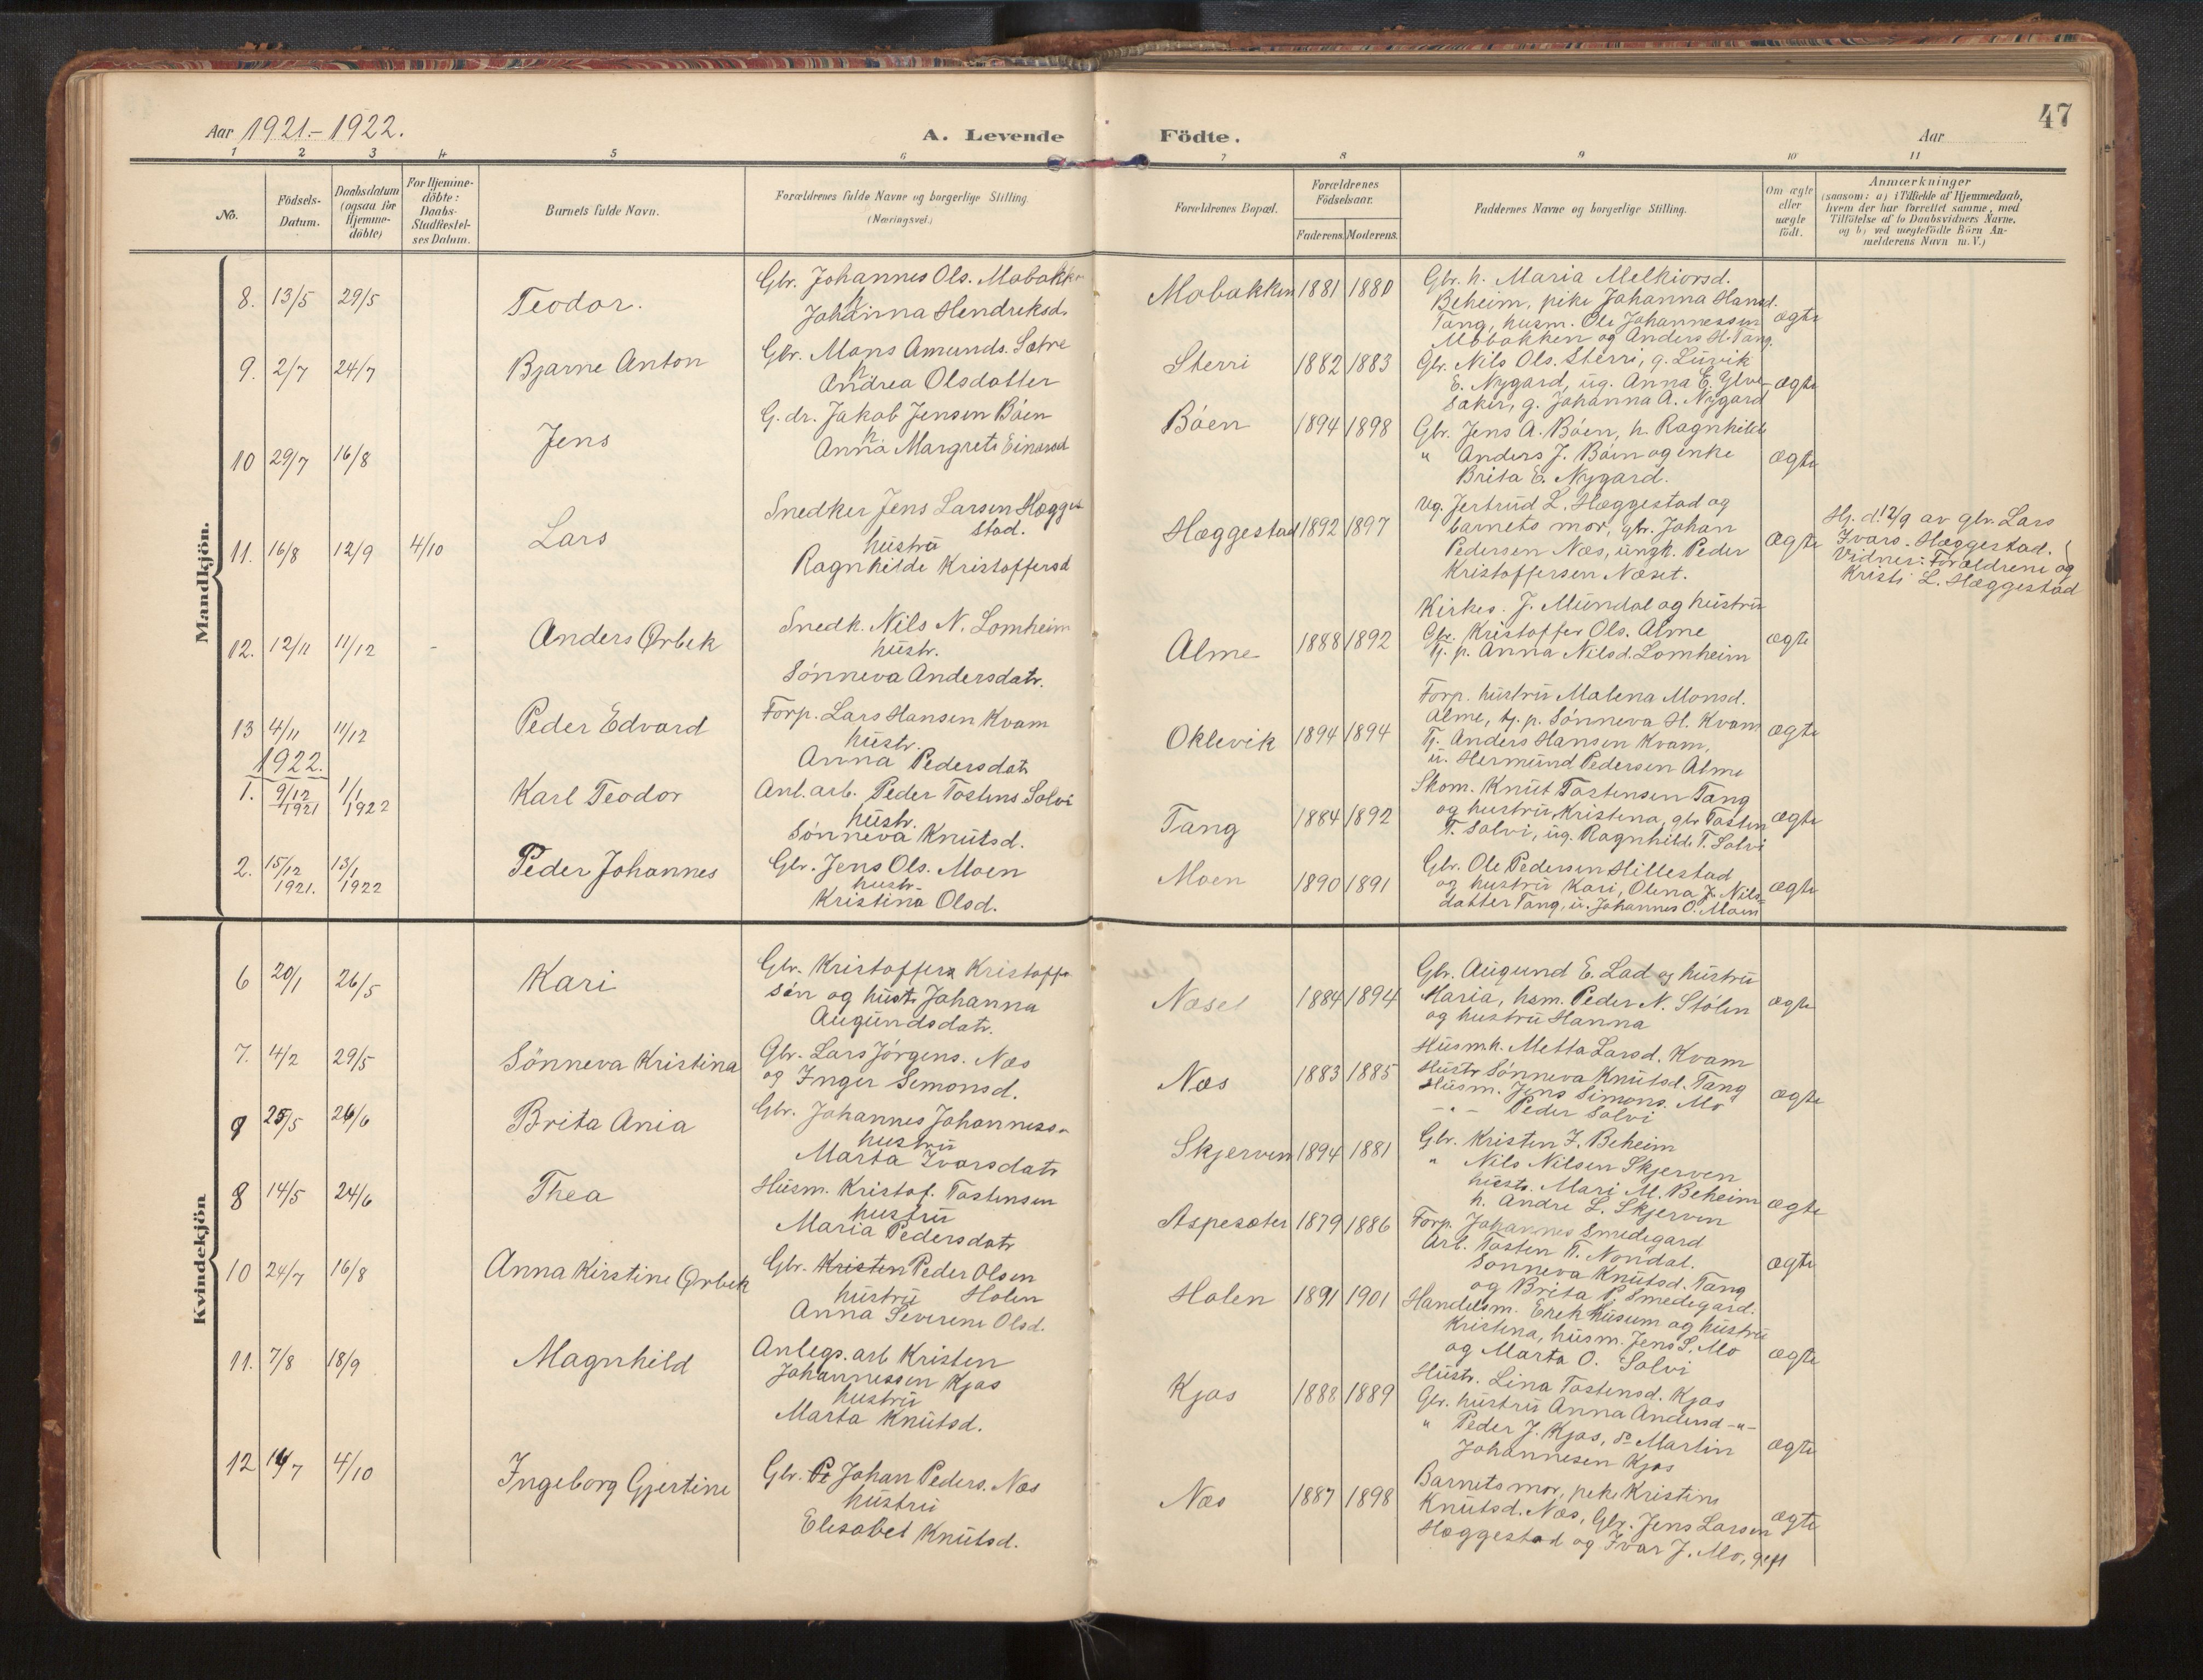 47
Aar 1921.-1922.
A. Levende Födte.
Aar
1 2 3 4 5 6 7 8 9 10 11
No.
Födsels-
Datum.
Daabsdatum
(ogsaa for
Hjemme-
döbte)
For Hjemme-
döbte:
Daabs-
Stadfæstel-
ses Datum.
Barnets fulde Navn.
Forældrenes fulde Navne og borgerlige Stilling.
(Næringsvei.)
Forældrenes Bopæl.
Forældrenes
Födselsaar.
Faderens. Moderens.
Faddernes Navne og borgerlige Stilling.
Om ægte
eller
uægte
födt.
Anmærkninger
(saasom: a) i Tilfælde af Hjemmedaab,
hvem der har forrettet samme, med
Tilföielse af to Daabsvidners Navne,
og b) ved uægtefödte Börn An-
melderens Navn m.V.)
Mandkjön.
8. 13/5 29/5
Teodor.
Gbr. Johannes Ols. Mobakken
h.
Johanna Hendriksd.
Mobakken 1881 1880
Gbr. h. Maria Melkiorsd.
Beheim, pike Johanna Hansd.
Tang, husm. Ole Johannessen
Mobakken og Anders H. Tang.
ægte
9. 2/7 24/7
Bjarne Anton
Gbr. Mons Amunds. Sætre
h.
Andrea Olsdatter
Sterri 1882 1883
Gbr. Nils Ols. Sterri, g. Ludvik
E. Nygard, ug. Anna E. Ylve-
saker, g. Johanna A. Nygard
ægte
10 29/7 16/8
Jens
G.dr. Jakob Jensen Bøen
h.
Anna Margrete Einarsd
Bøen 1894 1898
Gbr. Jens A. Bøen, h. Ragnhilde
" Anders J. Bøen og enke
Brita E. Nygard.
ægte
11. 16/8 12/9 4/10
Lars
Snedker Jens Larsen Hægge-
stad.
hustru
Ragnhilde Kristoffersd
Hæggestad 1892 1897
Ug. Jertrud L. Hæggestad og
barnets mor, gbr. Johan
Pedersen Næs, ungk. Peder
Kristoffersen Næset.
ægte
Hj. d. 12/9 av gbr. Lars
Ivars. Hæggestad.
Vidner: Forældrene og
Kristi L. Hæggestad
12. 12/11 11/12 -
Anders Ørbek
Snedk. Nils N. Lomheim
hustr.
Sønneva Andersdatr.
Alme 1888 1892
Kirkes. J. Mundal og hustru
Gbr. Kristoffer Ols. Alme
Tj. p. Anna Nilsd. Lomheim
ægte
13 4/11 11/12
Peder Edvard
Forp. Lars Hansen Kvam
hustr.
Anna Pedersdatr
Oklevik 1894 1894
Forp. hustru Malena Monsd.
Alme, tj. p. Sønneva H. Kvam
Tj. Anders Hansen Kvam,
u. Hermund Pedersen Alme
ægte
1922.
1. 9/12 1921 1/1 1922
Karl Teodor
Anl. arb. Peder Tostens. Solvi
hustr.
Sønneva Knutsd.
Tang 1884 1892
Skom. Knut Tostensen Tang
og hustru Kristina, gbr Tosten
T. Solvi, ug. Ragnhilde T. Solvi
ægte
2. 15/12 1921. 13/1 1922
Peder Johannes
Gbr. Jens Ols. Moen
hustr.
Kristina Olsd.
Moen 1890 1891
Gbr. Ole Pedersen Hillestad
og hustru Kari, Olena J. Nils-
datter Tang, u. Johannes O. Moen
ægte
Kvindekjön
6 20/1 26/5
Kari
Gbr. Kristoffer Kristoffer
søn og hustr. Johanna
Augundsdatr.
Næset 1884 1894
Gbr. Augund E. Lad og hustru
Maria, hsm. Peder N. Stølen
og hustru Hanna
ægte
7. 4/2 29/5
Sönneva Kristina
Gbr. Lars Jørgens. Næs
og Inger Semonsd.
Næs 1883 1885
Husm.h. Metta Larsd. Kvam
Hustr Sønneva Knutsd. Tang
Husm. Jens Simons. Mo
-"- Peder Solvi
ægte
9 25/5 26/6
Brita Ania
Gbr. Johannes Johanness.
hustru
Marta Ivarsdatr
Skjerven 1894 1881
Gbr. Kristen J. Beheim
" Nils Nilsen Skjerven
hustr. Mari M. Beheim
h. Andre L. Skjerven
ægte
8 14/5 24/6
Thea
Husm. Kristof. Tostensen
hustru
Maria Pedersdatr
Aspesæter 1879 1886
Forp. Johannes Smedegard
Arb. Tosten T. Nondal.
Sønneva Knutsd. Tang
og Brita P. Smedegard.
ægte
10 24/7 16/8
Anna Kirstine Ørbek
Gbr. Kristen Peder Olsen
hustru Holen
Anna Severine Olsd.
Holen 1891 1901
Handelsm. Erek Husum og hustru
Kristina, husm. Jens S. Mo
og Marta O. Solvi
ægte
11. 7/8 18/9
Magnhild
Anlegs. arb Kristen
Johannessen Kjos
hustru
Marta Knutsd.
Kjos 1888 1889
Hustr. Lina Tostensd. Kjos
Gbr. hustru Anna Andersd -"-
" Peder J. Kjos, do Martin
Johannesen Kjos
ægte
12 14/7 4/10
Ingeborg Gjertine
Gbr. Pe Johan Peders. Næs
hustru
Elisabet Knutsd.
Næs 1887 1898
Barnets mor, pike Kristine
Knutsd. Næs, Gbr. Jens Larsen
Hæggestad og Ivar J. Mo, gift
ægte